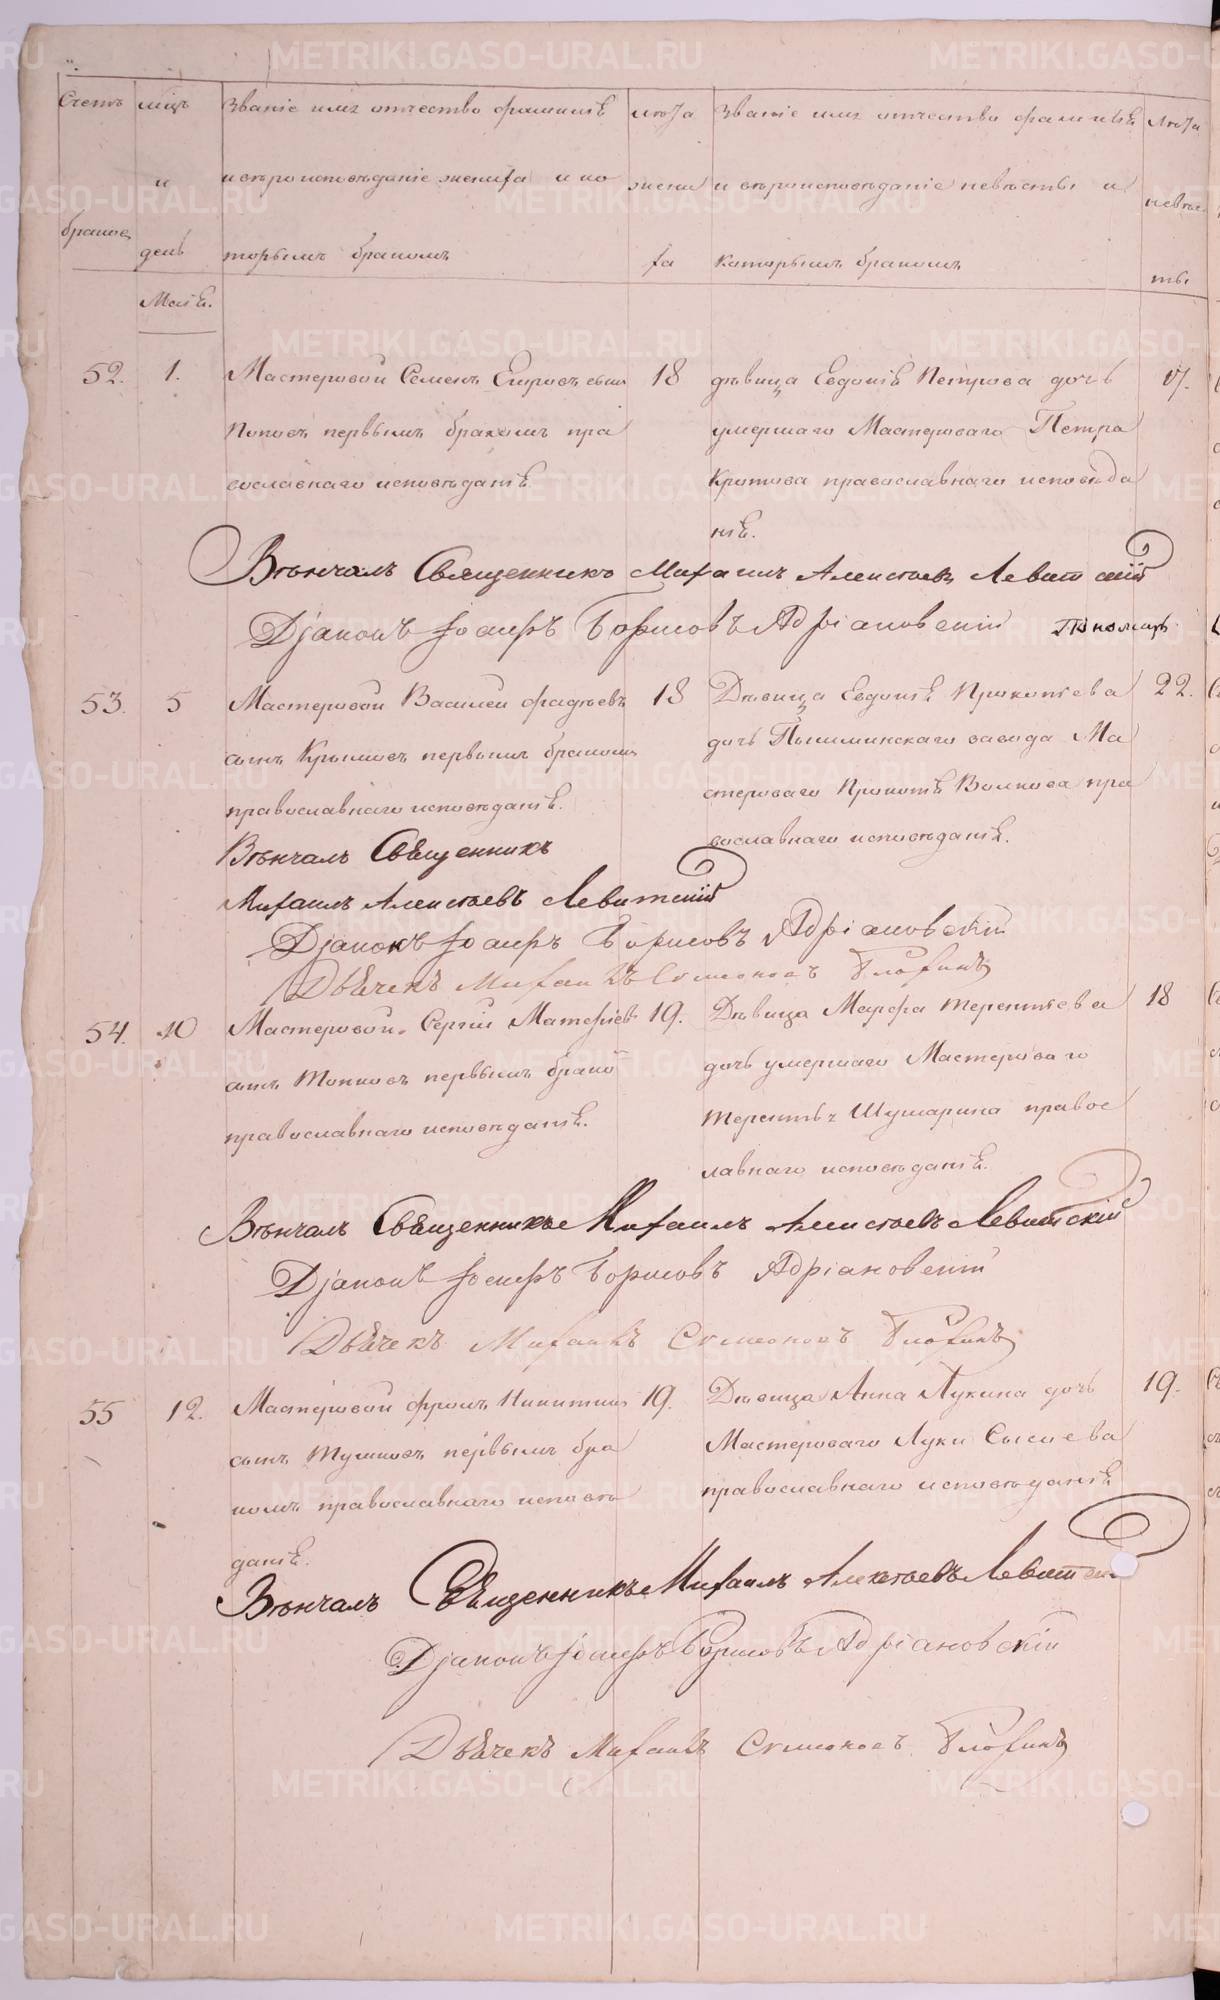 Счетъ мѣцъ Званіе имя отчество фамилія лѣта Званіе имя отчество фамилія лѣта
и и вѣроисповѣданіе жениха и ко жени и вѣроисповѣданіе невѣсты и невѣс
браков день торымъ бракомъ ха которымъ бракомъ ты
Маія.
52. 1. Мастеровой Семенъ Егоровъ сынъ 18 дѣвица Евдокія Петрова дочь 17.
Поповъ первымъ бракомъ пра умершаго Мастероваго Петра
вославнаго исповѣданія Кротова православнаго исповѣда
нія.
Вѣнчалъ Священникъ Михаилъ Алексѣевъ Левитскій
Діаконъ Іосифъ Борисовъ Адріановскій Пономарь
53. 5 Мастеровой Василей Фадѣевъ 18 Дѣвица Евдокія Прокопьева 22.
сынъ Крыловъ первымъ бракомъ дочь Пышминскаго завода Ма
православнаго исповѣданія. стероваго Прокопія Волкова пра
вославнаго исповѣданія.
Вѣнчалъ Священникъ
Михаилъ Алексѣевъ Левитскій
Діаконъ Іосифъ Борисовъ Адріановскій
Дьячекъ Михаилъ Симеоновъ
54. 10 Мастеровой Сергій Матфіев 19. Дѣвица Марфа Терентьева 18
сынъ первымъ брако дочь умершаго Мастероваго
православнаго исповѣданія. Терентья Шушарина правос
лавнаго исповѣданія.
Вѣнчалъ Священникъ Михаилъ Алексѣевъ Левитскій
Діаконъ Іосифъ Борисовъ Адріановскій
Дьячекъ Михаилъ Симеоновъ
55 12. Мастеровой Фролъ Никитинъ 19. Дѣвица Анна Лукина дочь 19.
сынъ первымъ бра Мастероваго Луки Сысоева
комъ православнаго исповѣ православнаго исповѣданія
данія.
Вѣнчалъ Священникъ Михаилъ Алексѣевъ Левитскій
Діаконъ Іосифъ Борисовъ Адріановскій
Дьячекъ Михаилъ Симеоновъ
METRIKI.GASO-URAL.RU